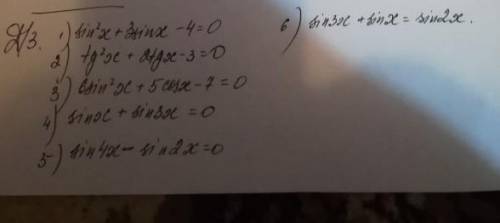 Д/З. 1) sin²x + 3sinx - 4 = 0
2) tg²x + 2tgx - 3 = 0
3) 6sin²x + 5cosx - 7 = 0
4) sinx + sin3x = 0
5) sin4x - sin2x = 0
6) sin3x + sinx = sin2x.